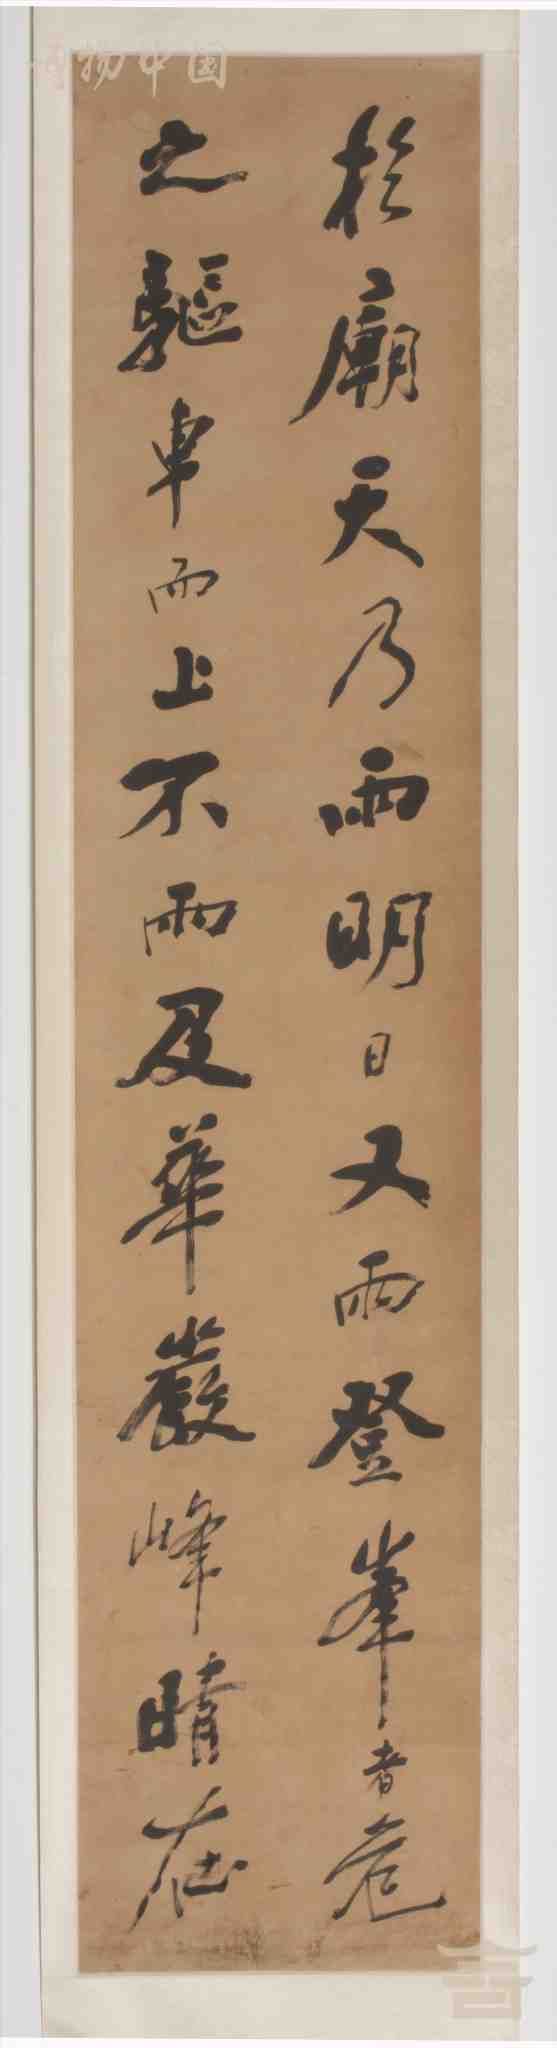 於廟天乃雨明日又雨登峯者危
之驅車而上不雨及華嚴峰晴在
物中国